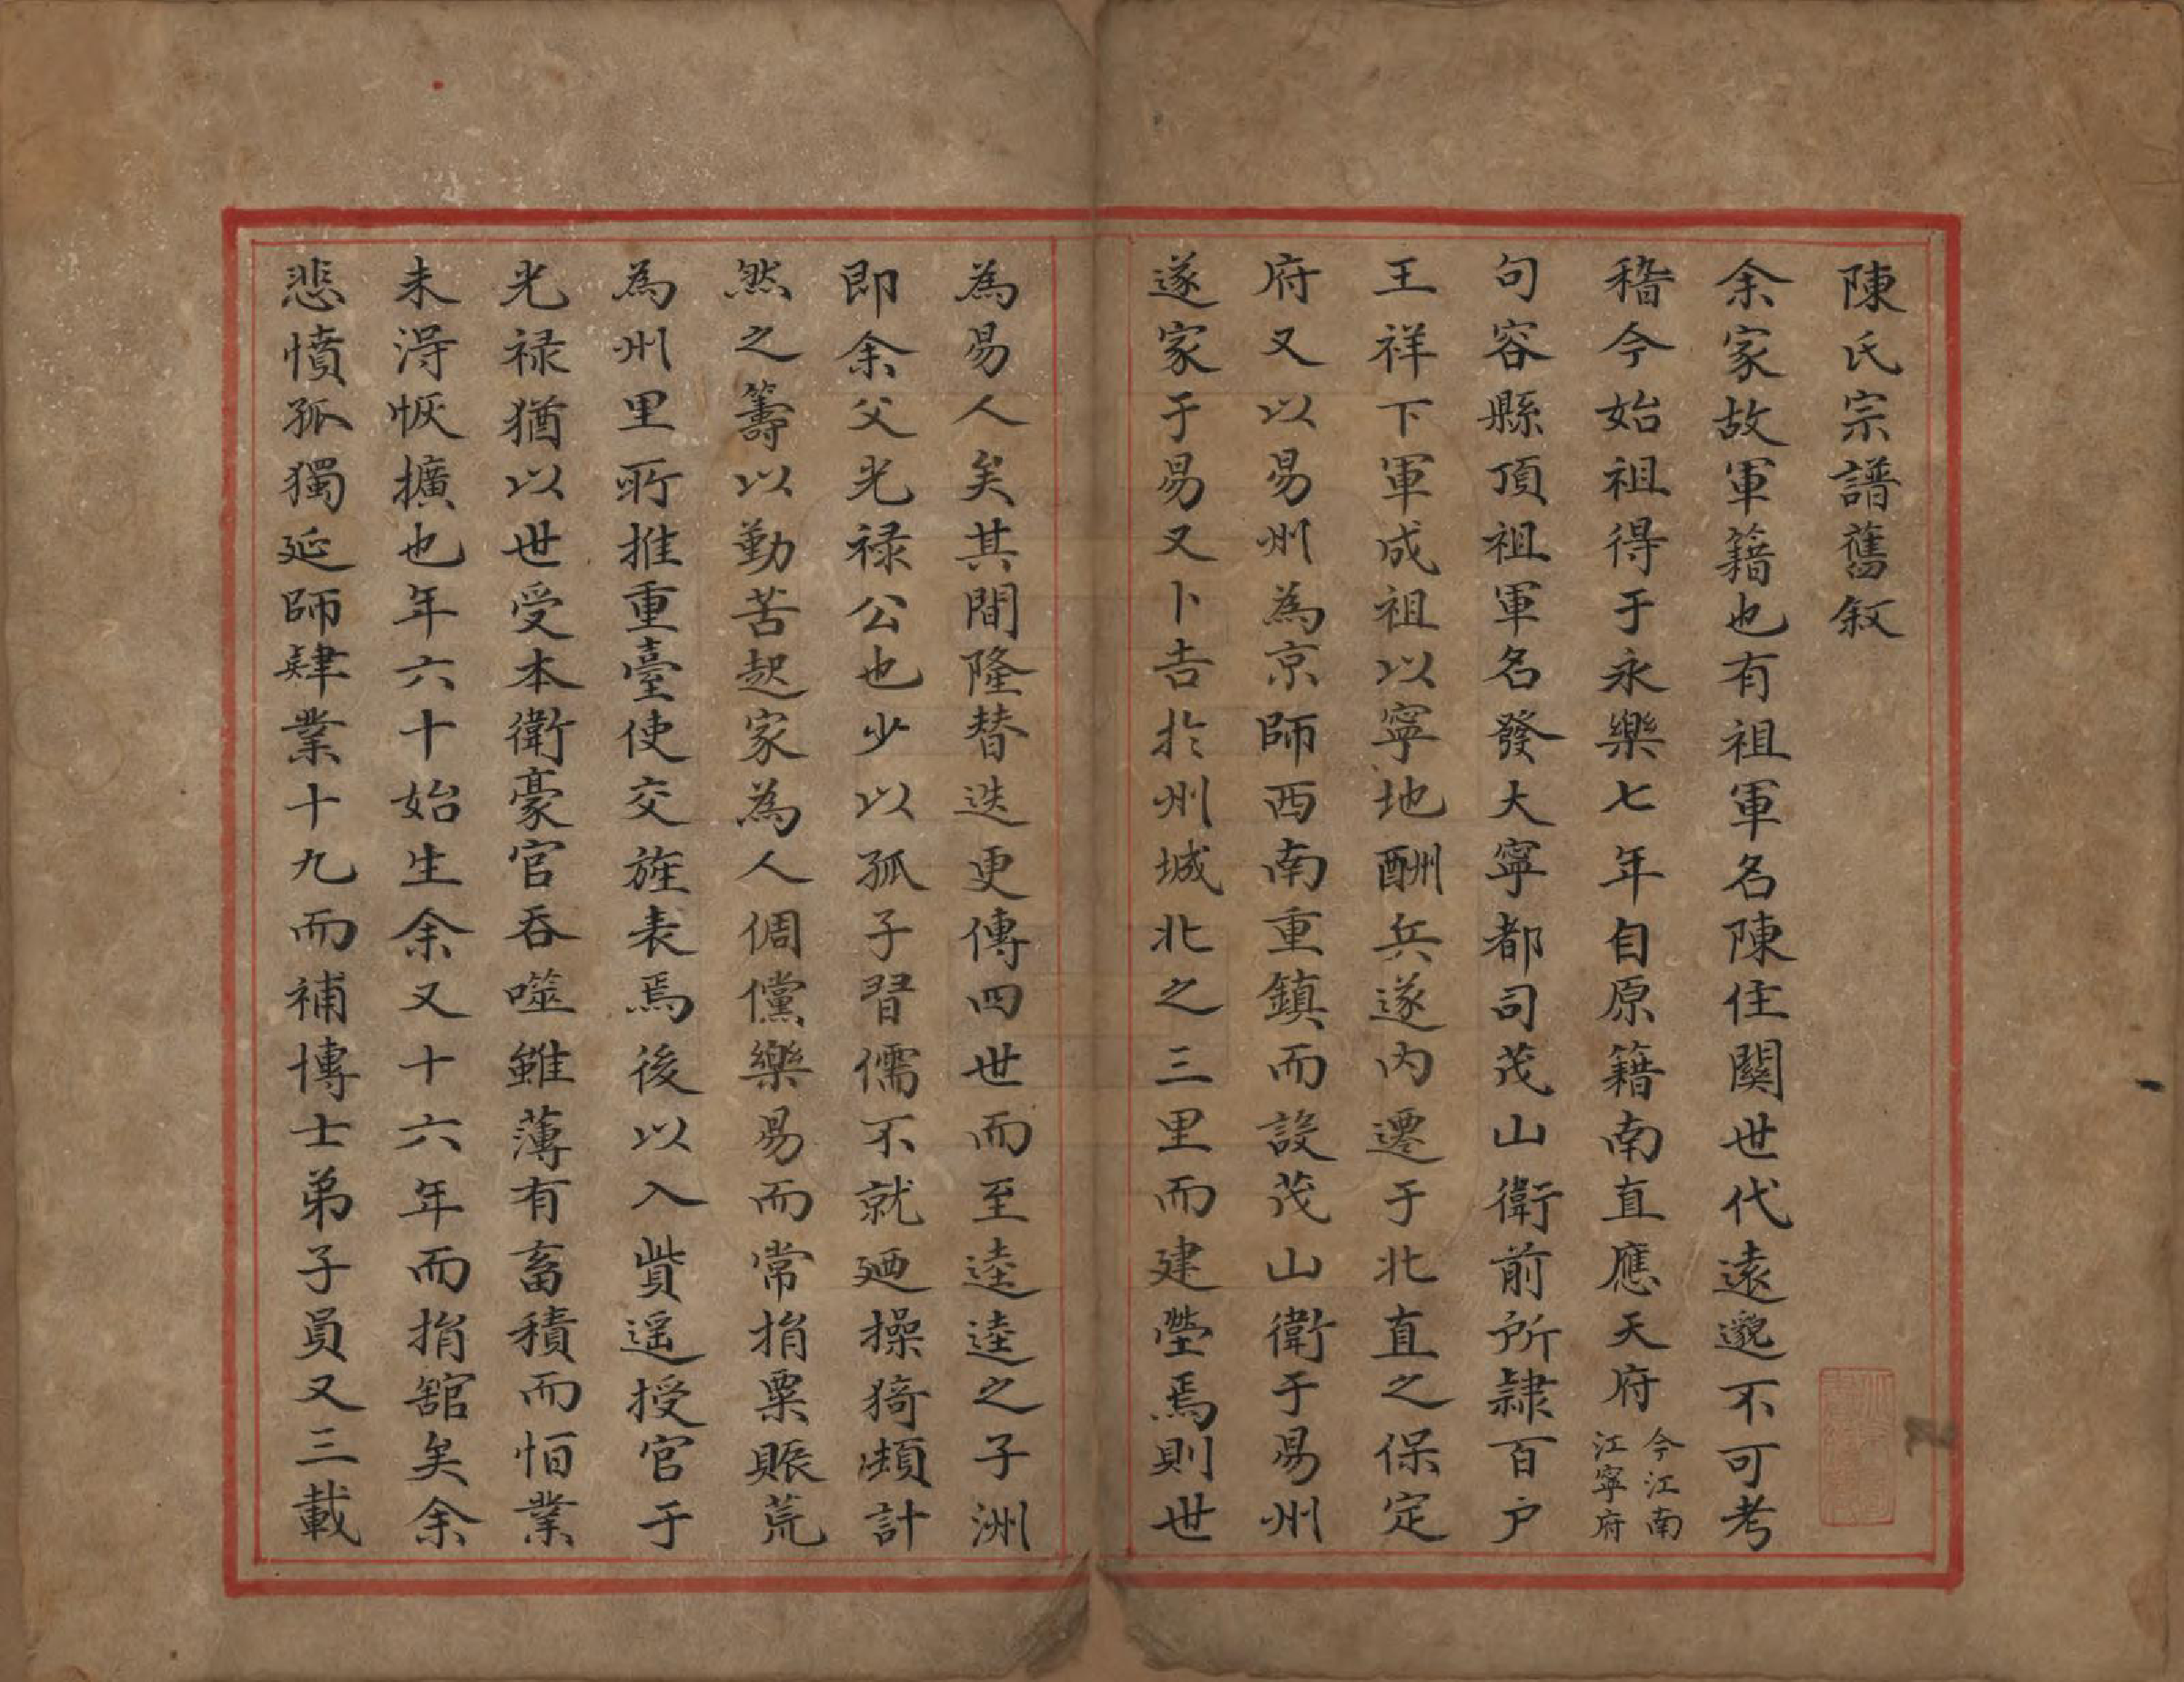 陳氏宗譜舊叙
余家故軍籍也有祖軍名陳住關世代遠邈不可考
稽今始祖得于永樂七年自原籍南直應天府今江南江寧府
句容縣頂祖軍名發大寧都司茂山衛前所隷百户
王祥下軍成祖以寧地酬兵遂内遷于北直之保定
府又以易州為京師西南重鎮而設茂山衛于易州
遂家于易又卜吉於州城北之三里而建塋焉則世
為易人矣其間隆替迭更傳四世而至逵逵之子洲
即余父光禄公也少以孤子習儒不就廼操猗頓計
然之籌以勤苦起家為人倜儻樂易而常捐粟賑荒
為州里所推重臺使交旌表焉後以入貲遥授官于
光禄猶以世受本衛豪官吞噬雖薄有畜積而恒業
未得恢擴也年六十始生余又十六年而捐舘矣余
悲憤孤獨延師肄業十九而補博士弟子員又三載